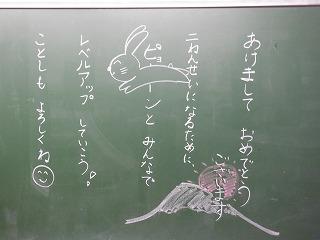 あけまして おめでとう
ございます
二ねんせいになるために、
ピョーンと みんなで
レベルアップ していこう!
ことしも よろしくね